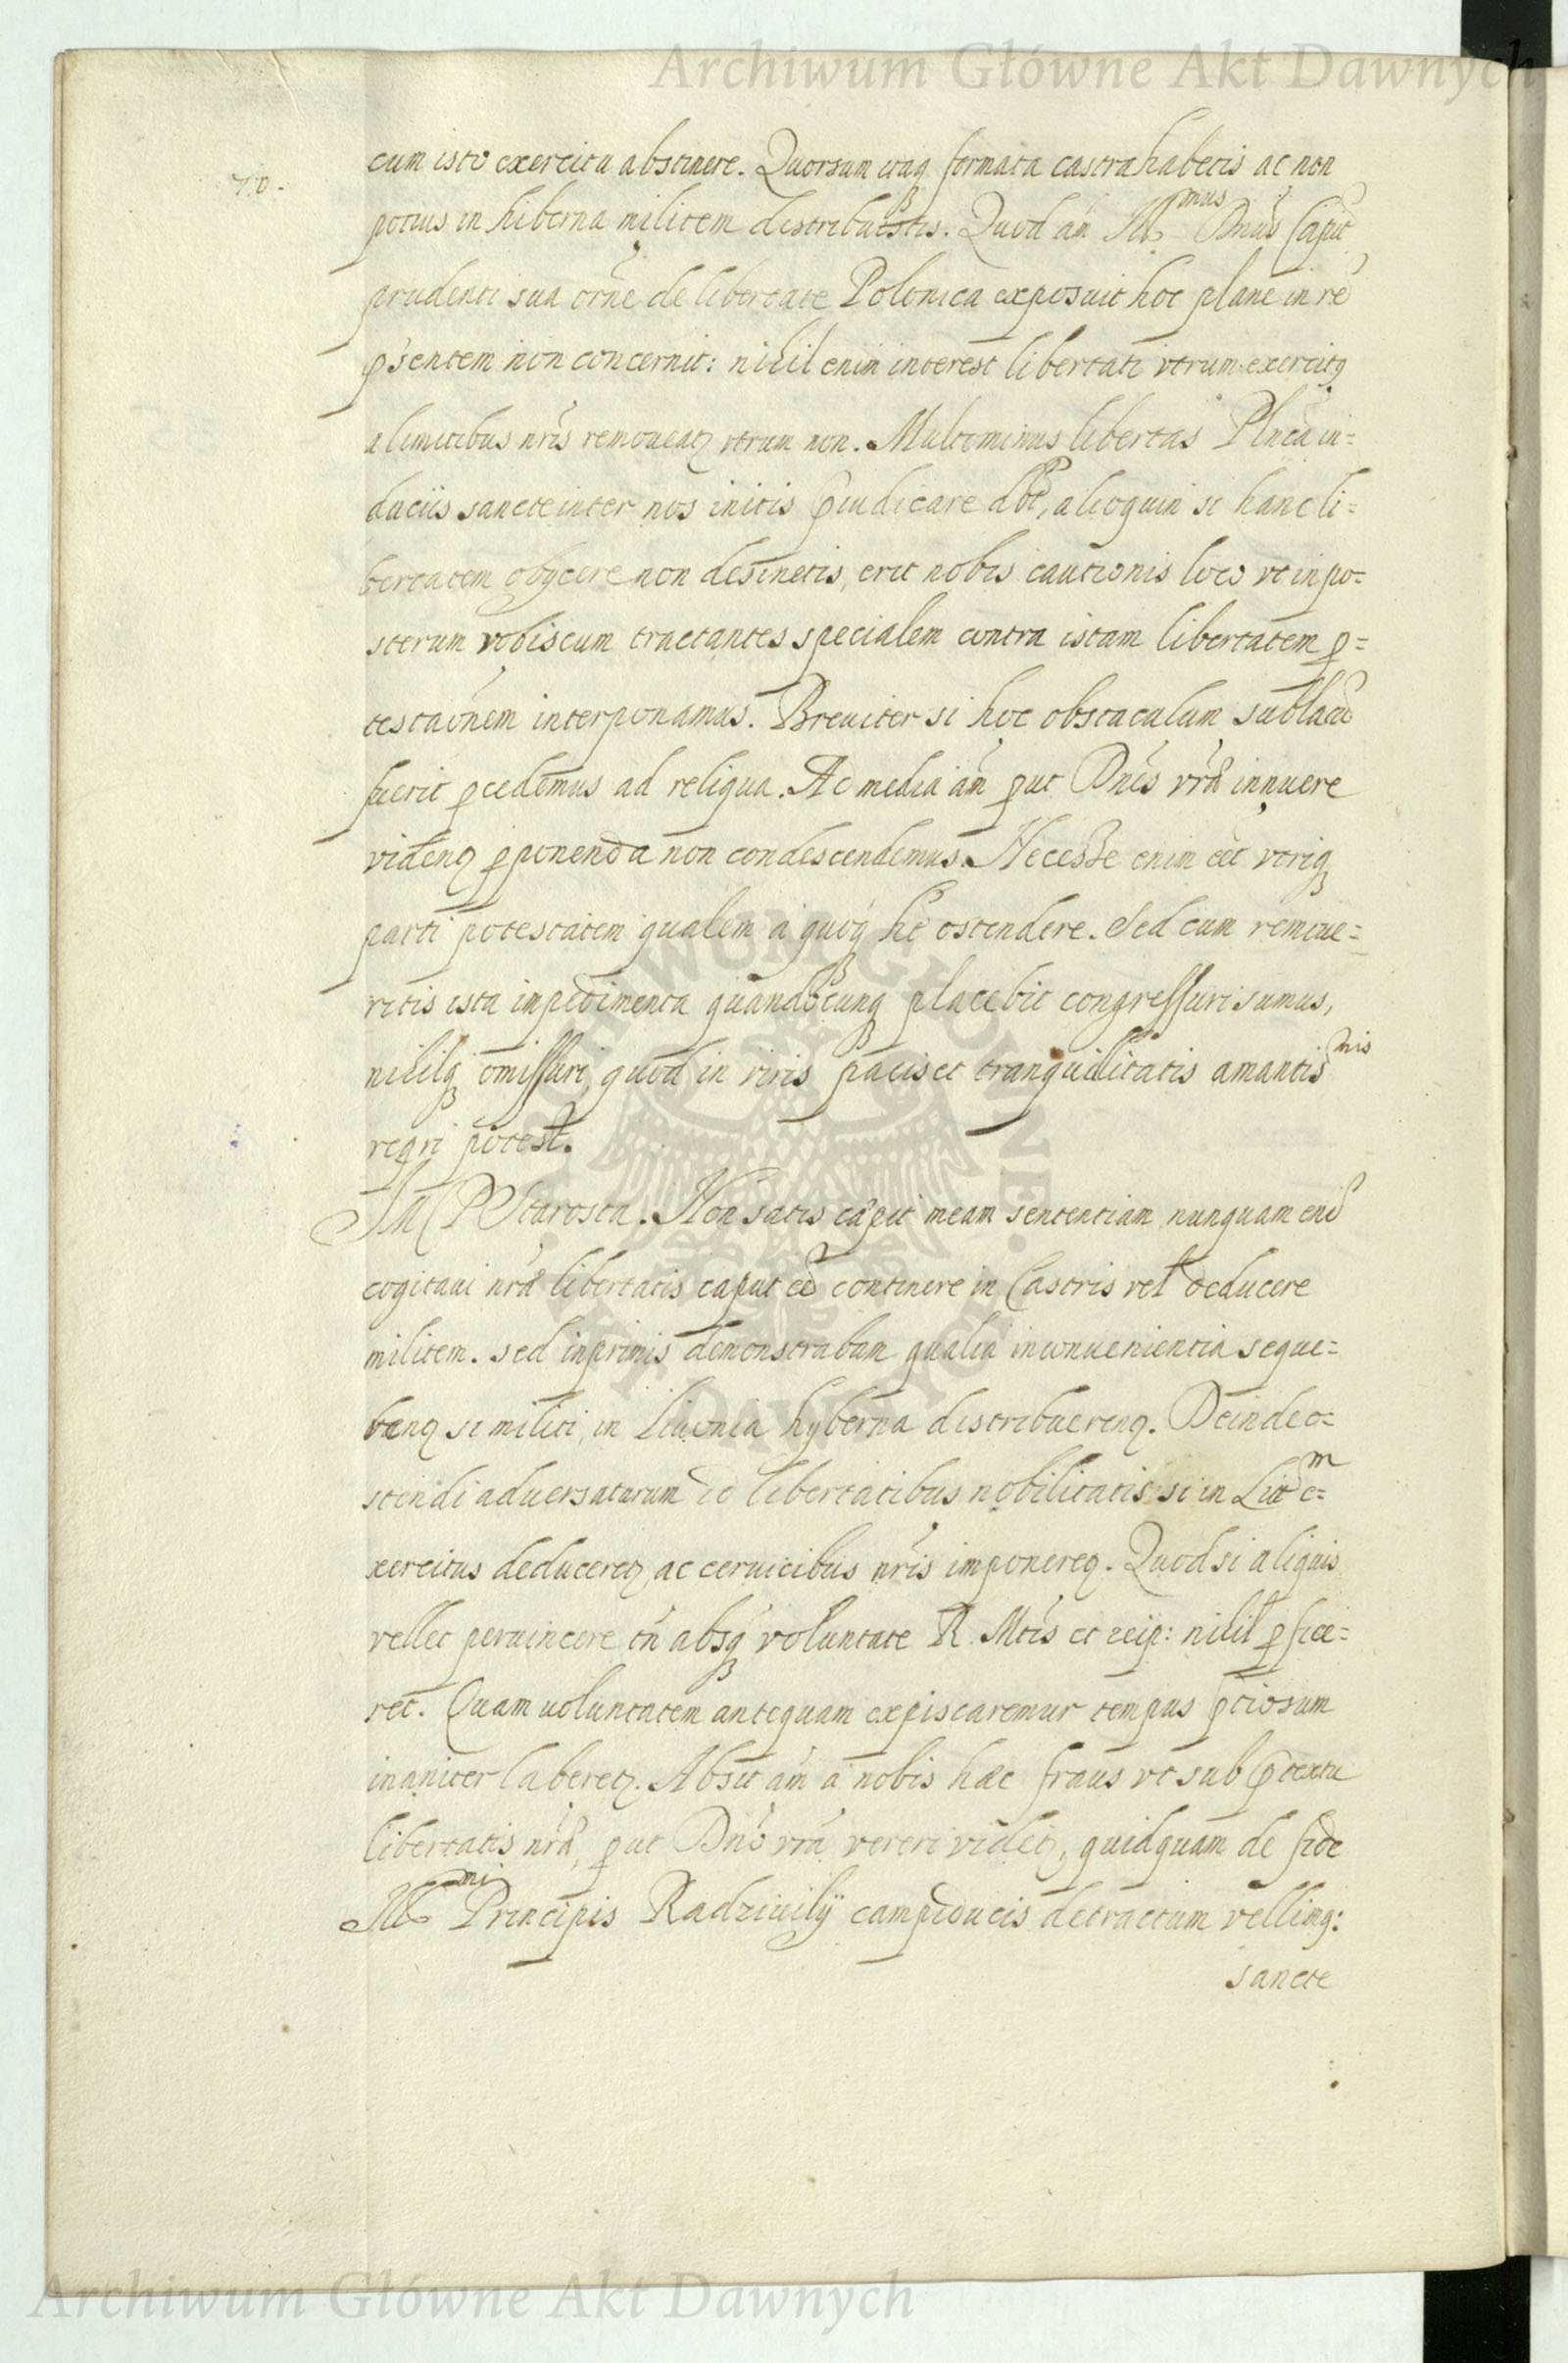 Archiwum Główne Akt Dawnych
70.
cum isto exercitu abstinere. Quorsum itaq formata castra habetis ac non
potius in hiberna militem distribuistis. Quod aũ Ill^mus Dnus Caput
prudenti sua orñe de libertate Polonica exposuit hoc plane in rẽ
p̃sentem non concernit: nihil enim interest libertati vtrum exercitq
a limitibus nris remoueatq vtrum non. Multominus libertas Plnca in=
duciis sancte inter nos initis p̃iudicare dbt, alioquin si hanc li=
bertatem obijcere non desinetis, erit nobis cautionis loco vt in po=
sterum vobiscum tractantes specialem contra istam libertatem p=
testaõnem interponamus. Breuiter si hoc obstaculum sublatũ
fuerit pcedemus ad reliqua. Ac media aũ put Dnes vrã innuere
videnq pponenda non condescendemus. Necesse enim eẽt vtriq
parti potestatem qualem a quoq hẽt ostendere. Sed cum remoue=
ritis ista impedimenta quandocunq placebit congressuri sumus,
nihilq omissuri, quod in viris pacis et tranquilitatis amantis^mis
reqri potest.
JM P Starosta. Non satis capit meam sententiam nunquam enĩ
cogitaui nrã libertatis caput eẽ continere in Castris vel deducere
militem. sed inprimis demonstrabam qualia inconuenientia seque=
banq si militi in Liuonia hyberna distribuerenq. Deinde o=
stendi aduersaturum id libertatibus nobilitatis si in Litt^m e=
xercitus deduceretq, ac ceruicibus nris imponereq. Quod si aliquis
vellet peruincere tñ absq voluntate R. Mtis et reip: nihil pfice=
ret. Quam uoluntatem antequam expiscaremur tempus p̃tiosum
inaniter laberetq. Absit aũ a nobis hæc fraus vt sub p̃textu
libertatis nrã, put Dno vrã vereri videtq, quidquam de fide
Ill^mi Principis Radziuilij campiducis detractum vellimq:
sancte
Archiwum Główne Akt Dawnych